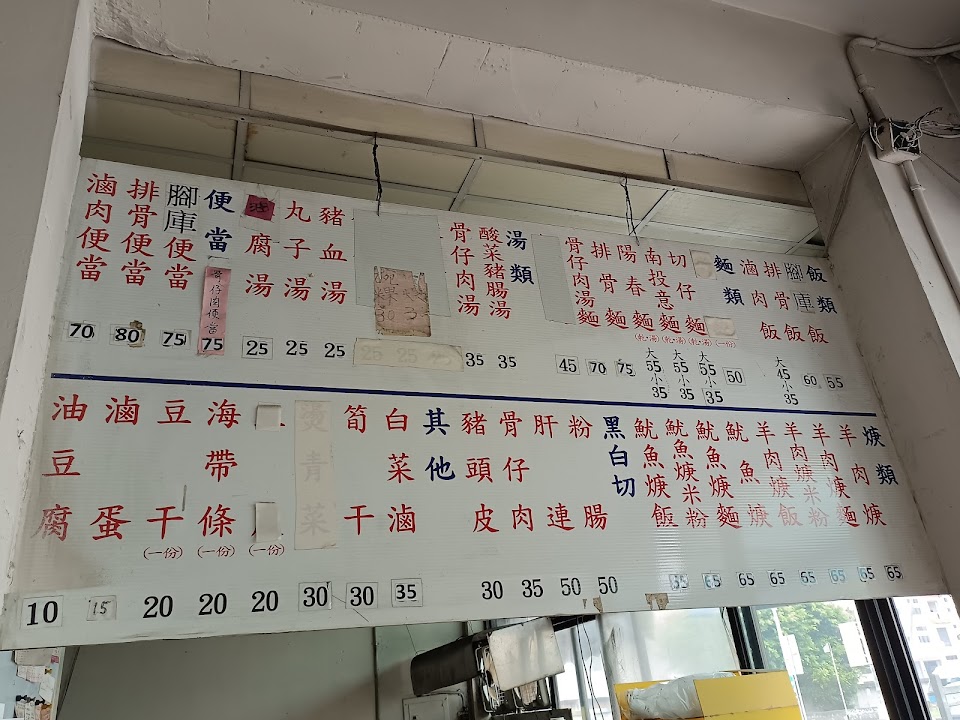 飯類
腳庫飯 55
排骨飯 60
滷肉飯 大45小35
麵類
(一份) 50
切仔麵 (乾·湯) 大55小35
南投意麵 (乾·湯) 大55小35
陽春麵 (乾·湯) 大55小35
排骨麵 75
骨仔肉湯麵 70
45
湯類
酸菜豬腸湯 35
骨仔肉湯 35
豬血湯 25
丸子湯 25
腐湯 25
便當
骨仔肉便當 75
腳庫便當 75
排骨便當 80
滷肉便當 70
焿類
羊肉焿 65
羊肉焿麵 65
羊肉焿米粉 65
羊肉焿飯 65
魷魚焿 65
魷魚焿麵 65
魷魚焿米粉 65
魷魚焿飯
黑白切
粉腸 50
肝連 50
骨仔肉 35
豬頭皮 30
其他
白菜滷 35
筍干 30
燙青菜 30
(一份) 20
海帶條 (一份) 20
豆干 (一份) 20
滷蛋 15
油豆腐 10